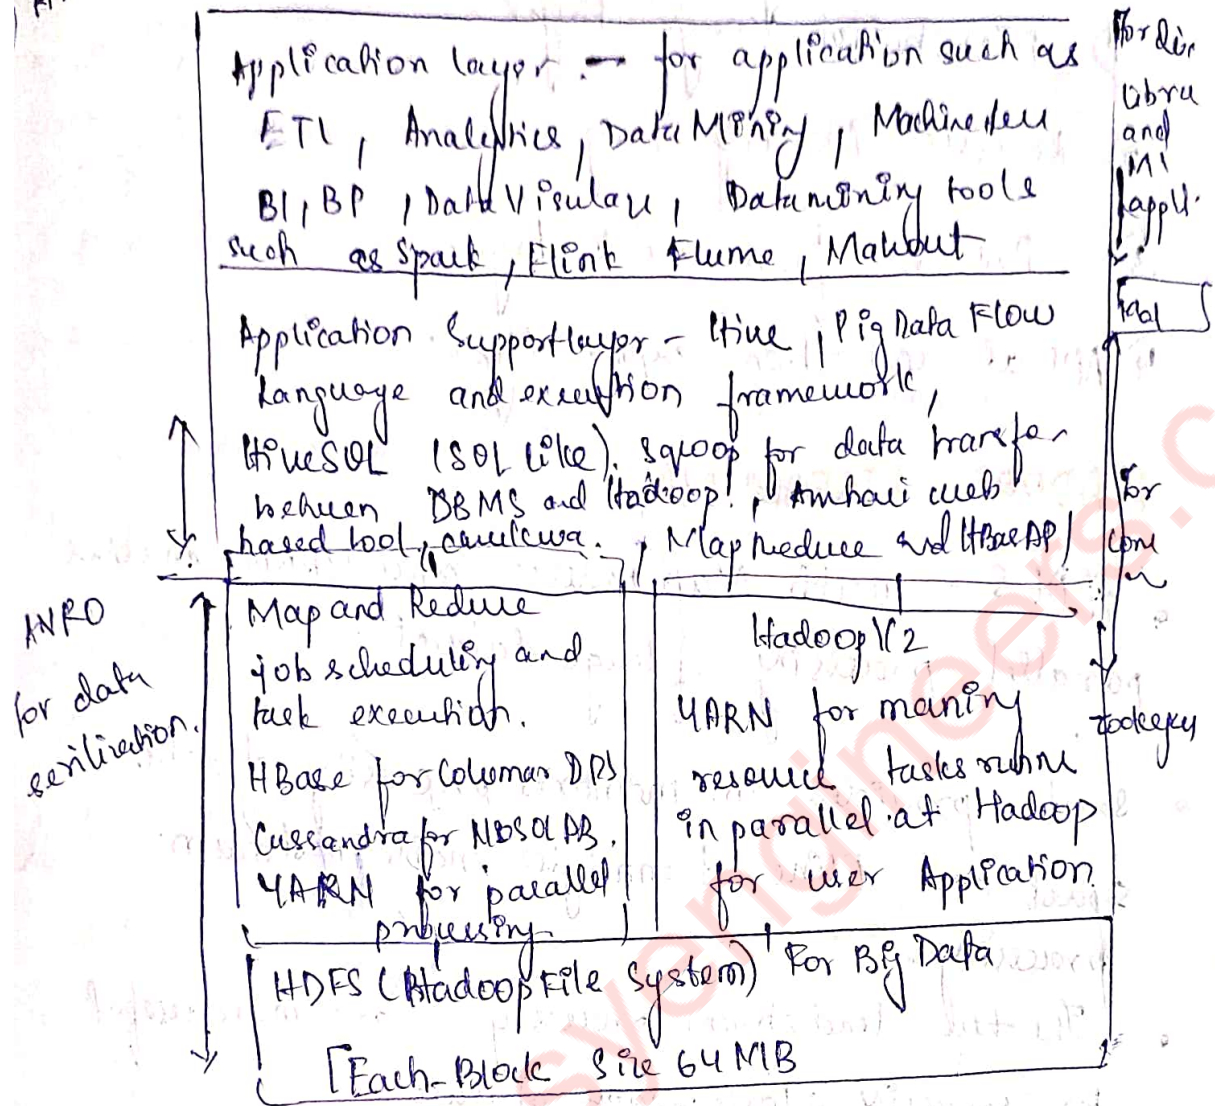 Application layer - for application such as
ETL, Analytics, Data Mining, Machine
BI, BP, Data Visulau, Datamining tools
such as Spark, Flink Flume, Mahout
Application Supportlayer - Hive, Pig Data Flow
Language and execution framework,
HiveSQL (SQL Like), sqoop for data transfer
between DBMS and Hadoop!, web
based tool, , MapReduce and HBase API
Map and Reduce
job scheduling and
task execution.
HBase for Columar DBs
Cassandra for NOSQL DB.
YARN for parallel
processing
Hadoop V2
YARN for maning
resource tasks
in parallel at Hadoop
for user Application
HDFS (Hadoop File System) For Big Data
[Each-Block Size 64 MB
for data
serilization.
and
Ml
appli.
For
syengineers.c